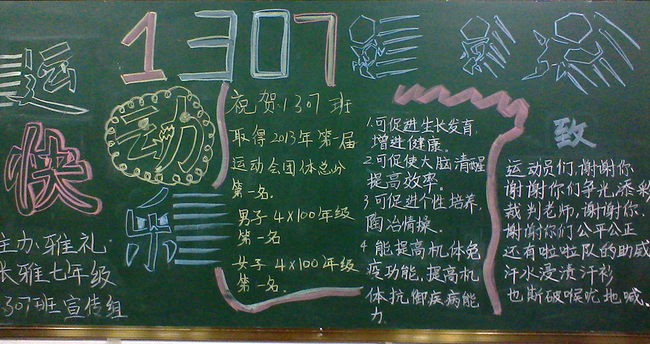 1307
运
动
快
乐
主办雅礼
长雅七年级
1307班宣传组
祝贺1307班
取得2013年第一届
运动会团体总分
第一名。
男子4×100年级
第一名
女子4×100年级
第一名。
1.可促进生长发育,
增进健康。
2.可促使大脑清醒
提高效率。
3.可促进个性培养,
陶冶情操。
4.能提高机体免
疫功能,提高机
体抗御疾病能
力
致
运动员们,谢谢你
谢谢你们争光,添彩
裁判老师,谢谢你,
谢谢你们公平公正
还有啦啦队的助威
汗水浸渍汗衫
也斯破喉咙地喊